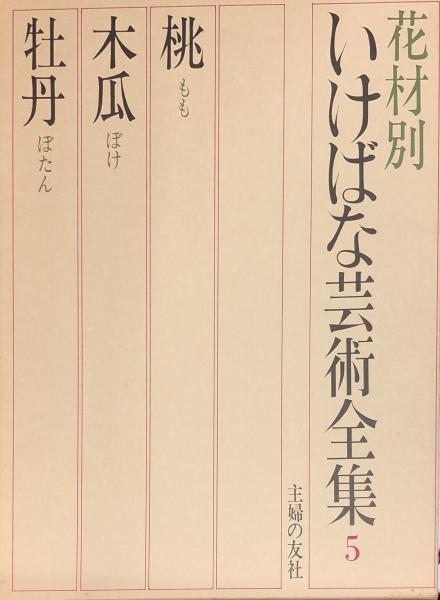 花材別
いけばな芸術全集
5
主婦の友社
桃
もも
木瓜
ぼけ
牡丹
ぼたん